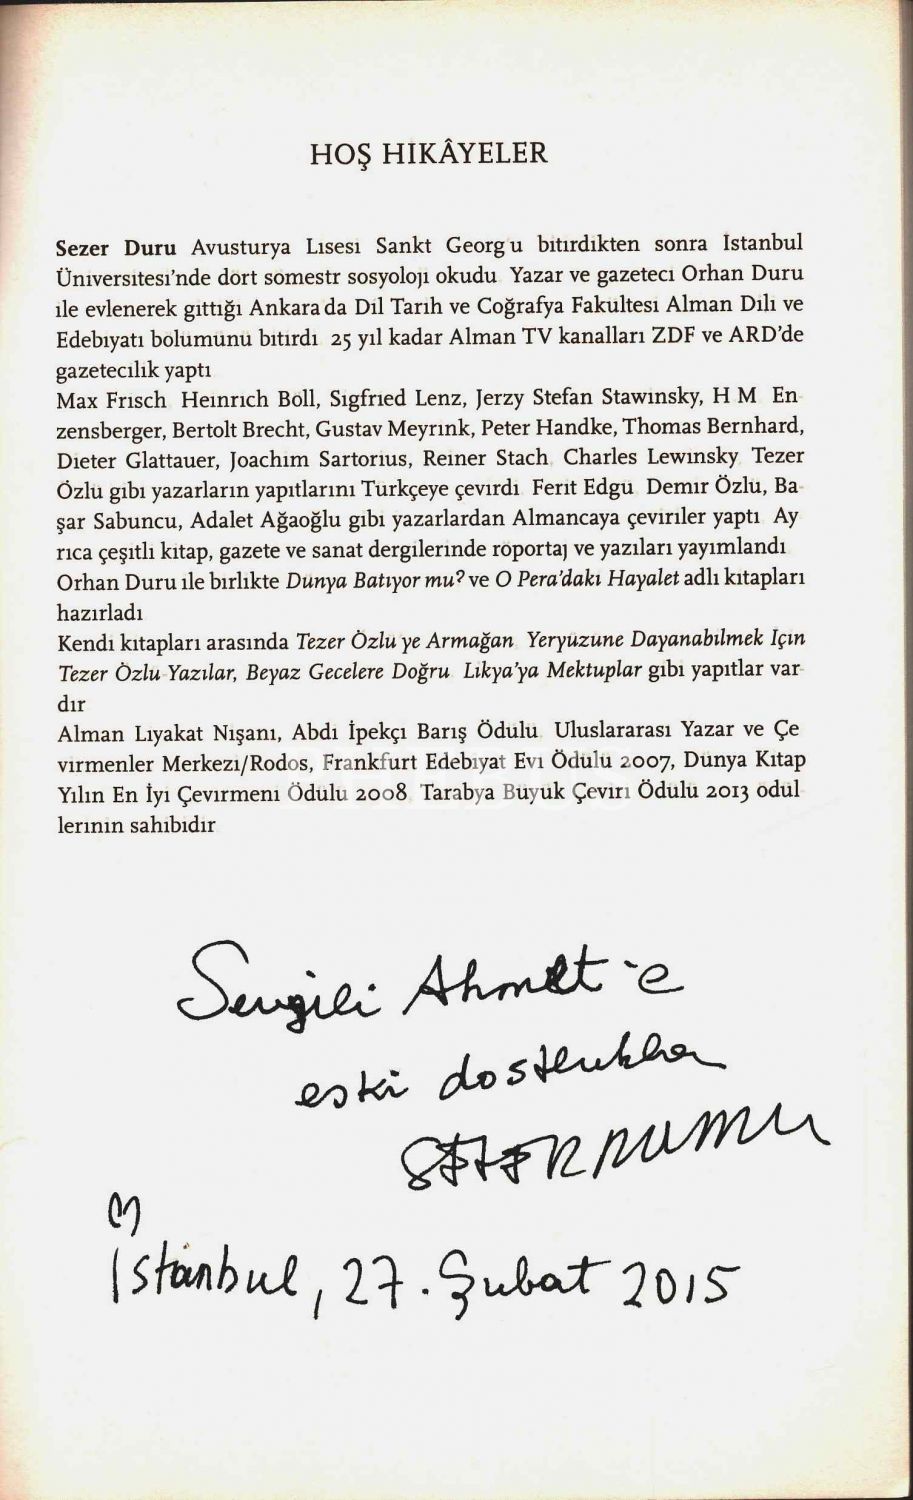 HOŞ HIKÂYELER
Sezer Duru Avusturya Lısesı Sankt Georg u bıtırdıkten sonra İstanbul
Ünıversıtesı'nde dort somestr sosyolojı okudu Yazar ve gazetecı Orhan Duru
ıle evlenerek gıttığı Ankara da Dıl Tarıh ve Coğrafya Fakultesı Alman Dılı ve
Edebıyatı bolumunu bıtırdı 25 yıl kadar Alman TV kanalları ZDF ve ARD'de
gazetecılık yaptı
Max Frısch Heınrıch Boll, Sıgfrıed Lenz, Jerzy Stefan Stawınsky, H M En-
zensberger, Bertolt Brecht, Gustav Meyrınk, Peter Handke, Thomas Bernhard,
Dıeter Glattauer, Joachım Sartorıus, Reıner Stach Charles Lewınsky Tezer
Özlu gıbı yazarların yapıtlarını Turkçeye çevırdı Ferıt Edgu Demır Özlu, Ba-
şar Sabuncu, Adalet Ağaoğlu gıbı yazarlardan Almancaya çevırıler yaptı Ay
rıca çeşıtlı kıtap, gazete ve sanat dergılerınde roportaj ve yazıları yayımlandı
Orhan Duru ıle bırlıkte Dunya Batıyor mu? ve O Pera'dakı Hayalet adlı kıtapları
hazırladı
Kendı kıtapları arasında Tezer Özlu ye Armağan Yeryuzune Dayanabılmek Için
Tezer Özlu-Yazılar, Beyaz Gecelere Doğru Lıkya'ya Mektuplar gıbı yapıtlar var-
dır
Alman Lıyakat Nışanı, Abdı İpekçı Barış Ödulu Uluslararası Yazar ve Çe
vırmenler Merkezı/Rodos, Frankfurt Edebıyat Evı Ödulu 2007, Dunya Kıtap
Yılın En İyı Çevırmenı Ödulu 2008 Tarabya Buyuk Çevırı Ödulu 2013 odul
lerının sahıbıdır
Sevgili Ahmet'e
eski dostlukla
SEZER DURU
İstanbul, 27. Şubat 2015